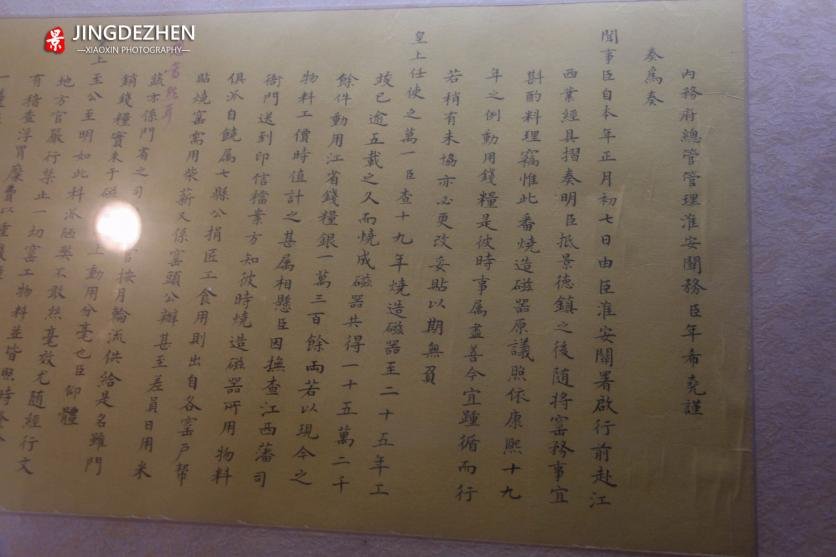 景 JINGDEZHEN
—XIAOXIN PHOTOGRAPHY—
內務府總管管理淮安關務臣年希堯謹
奏爲奏
聞事臣自本年正月初七日由臣淮安關署啟行前赴江
西業經具摺奏明臣抵景德鎮之後隨將窰務事宜
斟酌料理竊惟此番燒造磁器原議照依康熙十九
年之例動用錢糧是彼時事属盡善今宜踵循而行
若稍有未協亦必更改妥貼以期無負
皇上任使之萬一臣查十九年燒造磁器至二十五年工
竣已逾五載之久而燒成磁器共得一十五萬二千
餘件動用江省錢糧銀一萬三百餘両若以現今之
物料工價時值計之甚属相懸臣因撫查江西藩司
衙門送到印信檔案方知彼時燒造磁器所用物料
俱派自饒属七縣公捐匠工食用則出自各窰戶幇
貼燒窰需用柴薪又係窰頭公辦甚至差員日用米
蔬亦係門省之司官按月輪流供給是名雖門
銷錢糧實未于磁上動用分毫也臣仰體
上至公至明如此科派陋獘不敢絲毫效尤随經行文
地方官嚴行禁止一切窰工物料並皆照時發
有稽查浮冒糜費以重